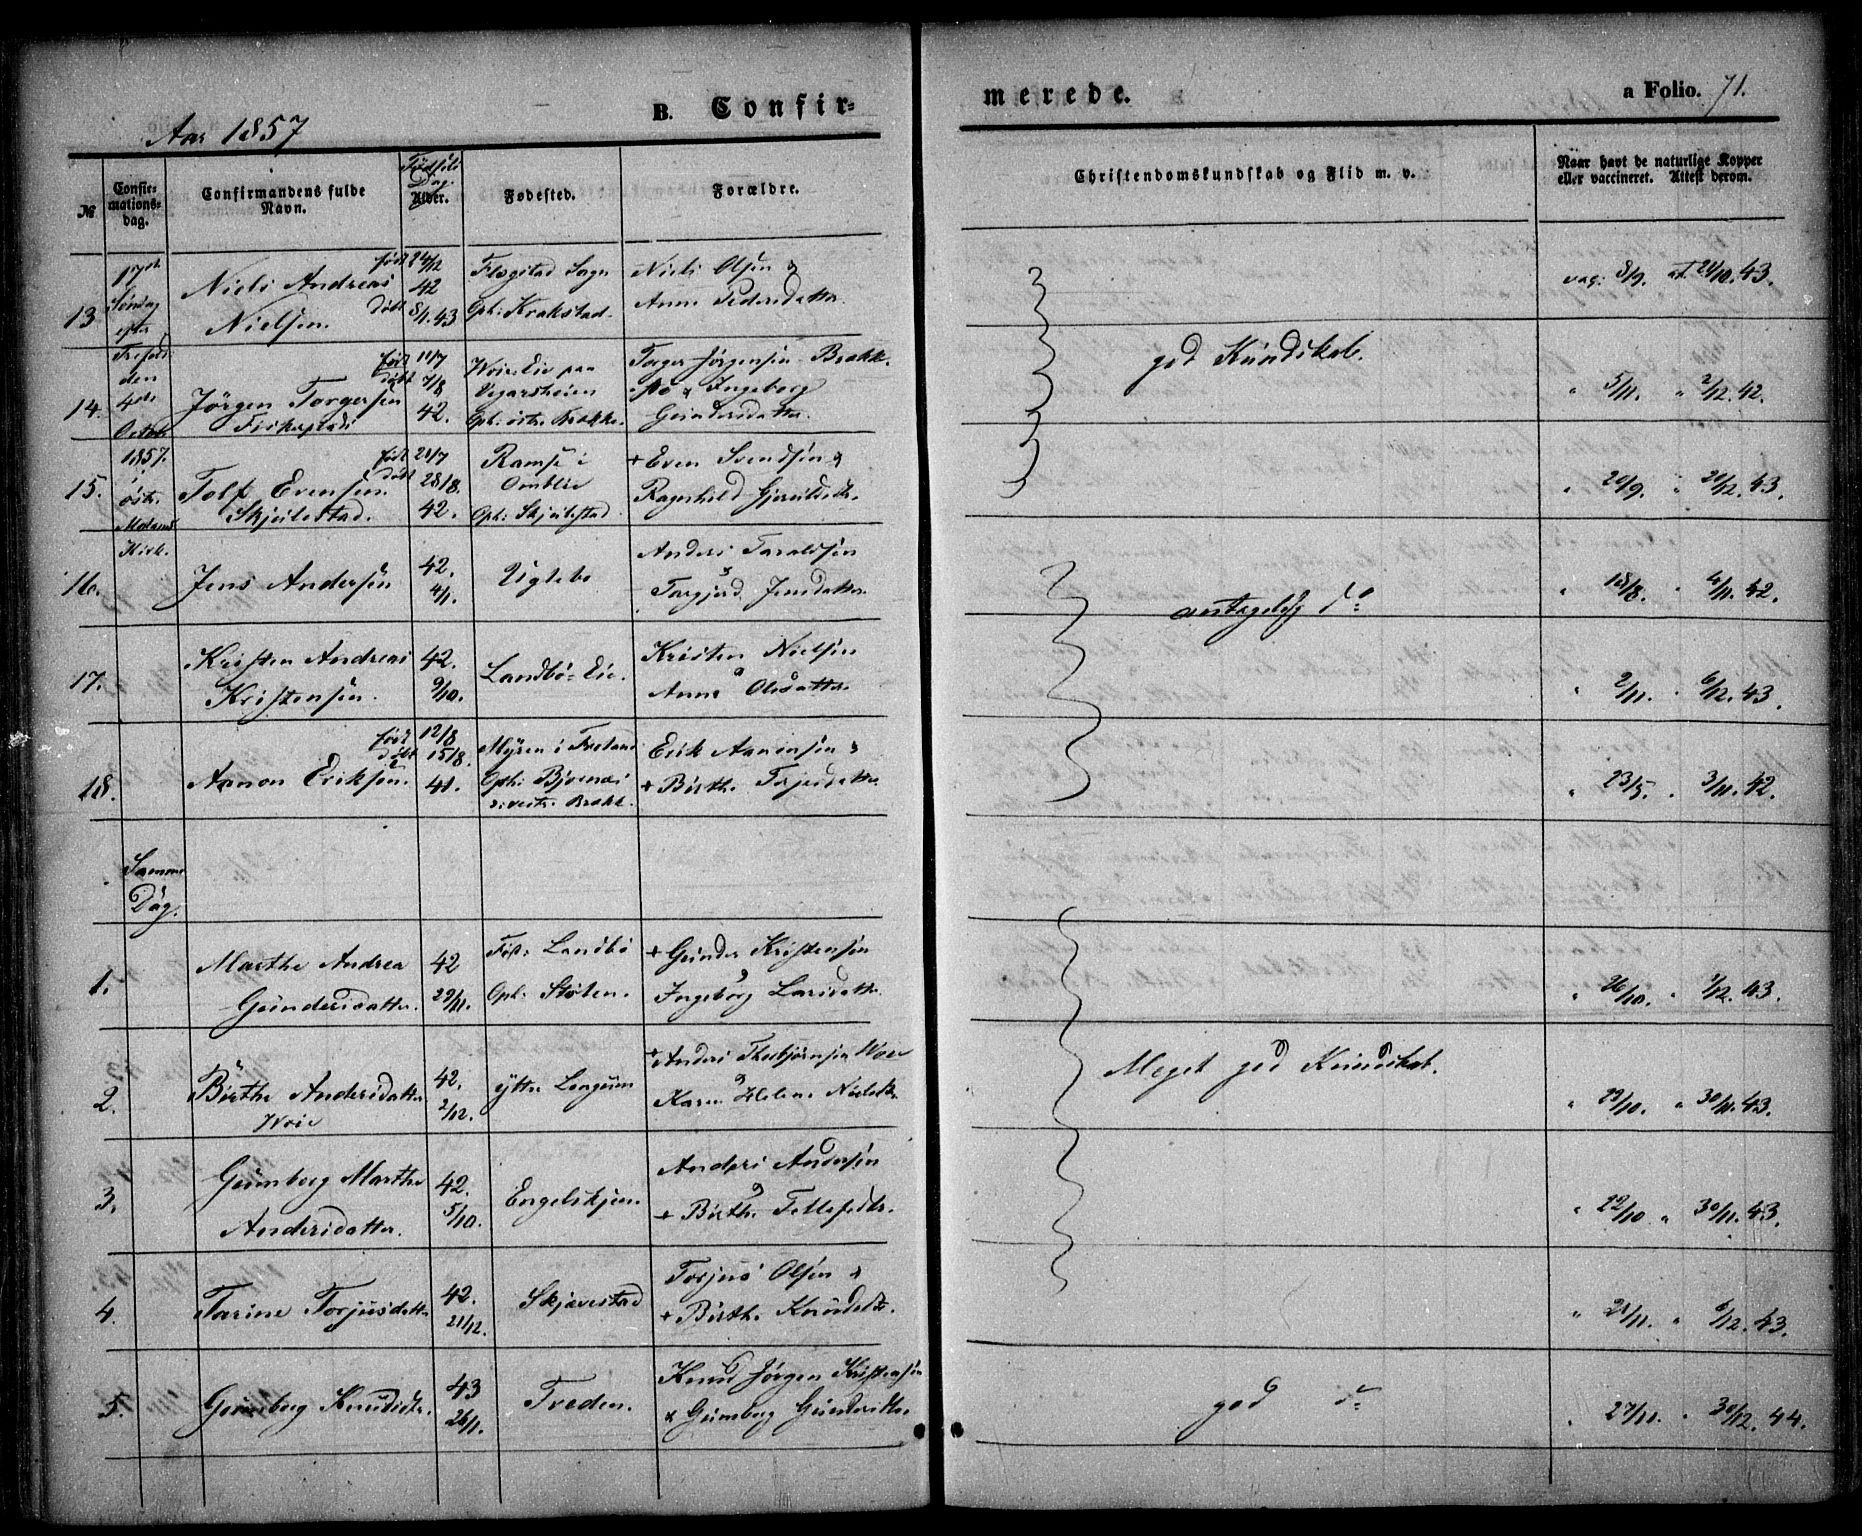 Aar 1857
B. Confir-
merede.
a Folio. 71.
№
Confir-
mations-
dag.
Confirmandens fulde
Navn.
Fødsels
Dag.
Alder.
Fødested.
Forældre.
Christendomskundskab og Flid m. v.
Naar havt de naturlige Kopper
eller vaccineret. Attest derom.
17de
Søndag
efter
13
Niels Andreas
Nielsen.
født 24/12
42
døbt 8/1. 43
Flægstad Sogn
Oph: Krakstad.
Niels Olsen &
Anne Pedersdatter
vac: 8/9. at. 24/10. 43.
den
4de
Octob
14.
Jörgen Torgersen
født 11/7
døbt 7/8
42.
Vegarsheien
Oph: östr. Brække.
Torger Jörgensen Brækk
& Ingeborg
Gundersdatter.
god Kundskab.
" 5/11. " 2/12. 42.
1857.
östr.
Kirk.
15.
Tolf Evensen
Skjulestad.
født 21/7
døbt 28/8.
42.
Ramse i
Omblie
Oph: Skjulestad
+ Even Svendsen &
Ragnhild
" 20/9. " 20/12. 43.
16.
Jens Andersen
42.
4/1.
Uglebo
Anders Taraldsen
&
Torgjerd Jensdatter.
antagelig do
" 18/8. " 4/11. 42.
17.
Kristen Andreas
Kristensen.
42.
9/10.
Landbö-Eie.
Kristen Nielsen
&
Anne Olsdatter
" 2/11. " 6/12. 43.
18.
Aanon Eriksen.
født 12/8
døbt 15/8.
41.
Myren i Froland
Oph: Bjønnæs
Erik Aanonsen &
+ Birthe Torjesdatter.
" 23/5. " 3/11. 42.
Samme
Dag.
1.
Marthe Andrea
Gundersdatter.
42
29/11.
Fød: Landbö
Oph: Stölen.
+ Gunder Kristensen
&
Ingeborg Larsdatter
" 26/10. " 1/12. 43.
2.
Birthe Andersdatter
Woie
42.
2/12.
ytre Lengum
+ Anders Thorbjörnsen Woie
&
Karen Helene Nielsdtr
Meget god Kundskab.
" 29/10. " 30/11. 43.
3.
Gunborg Marthe
Andersdatter.
42.
5/10.
Engelskjøn.
Anders Andersen
&
+ Birthe Tellefsdtr.
" 22/10 " 30/11. 43.
4.
Tarine Torjusdatter
42.
21/12.
Skjævestad
Torjus Olsen &
+ Birthe Knudsdtr.
" 21/11. " 6/12. 43.
5.
Gunborg Knudsdtr.
43
26/1.
Tveden.
Knud Jörgen Kristensen
& Gunborg Gundersdtr.
god do
" 27/11. " 30/12. 44.